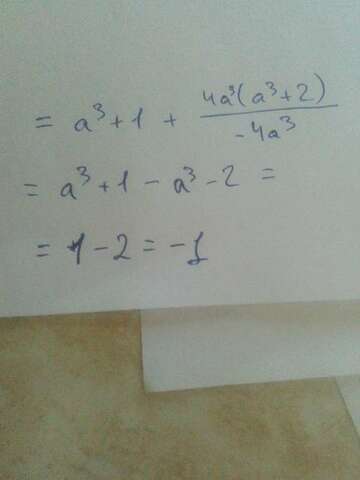 = a³+1 + 4a³(a³+2)/-4a³
= a³+1 - a³ - 2 =
= 1 - 2 = -1